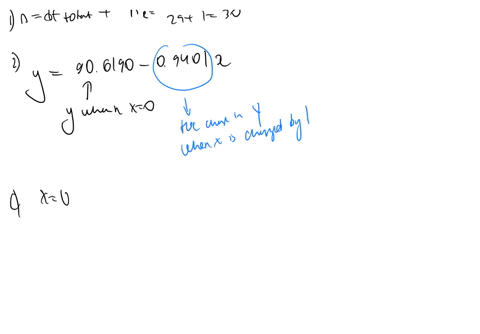 1) n = df total + 1 = 29 + 1 = 30
2) y = 90.6190 - 0.9401 x
y when x=0
the change in y
when x is changed by 1
x=0